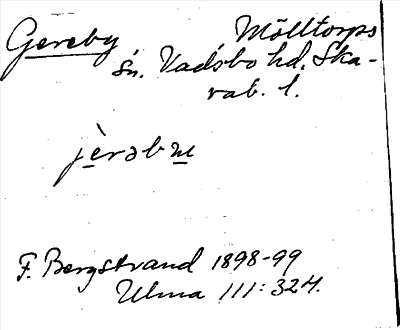 Gereby Mölltorps
sn. Vadsbo hd. Ska-
rab. l.
jèrəbɯ
F. Bergstrand 1898-99
Ulma 111:324.